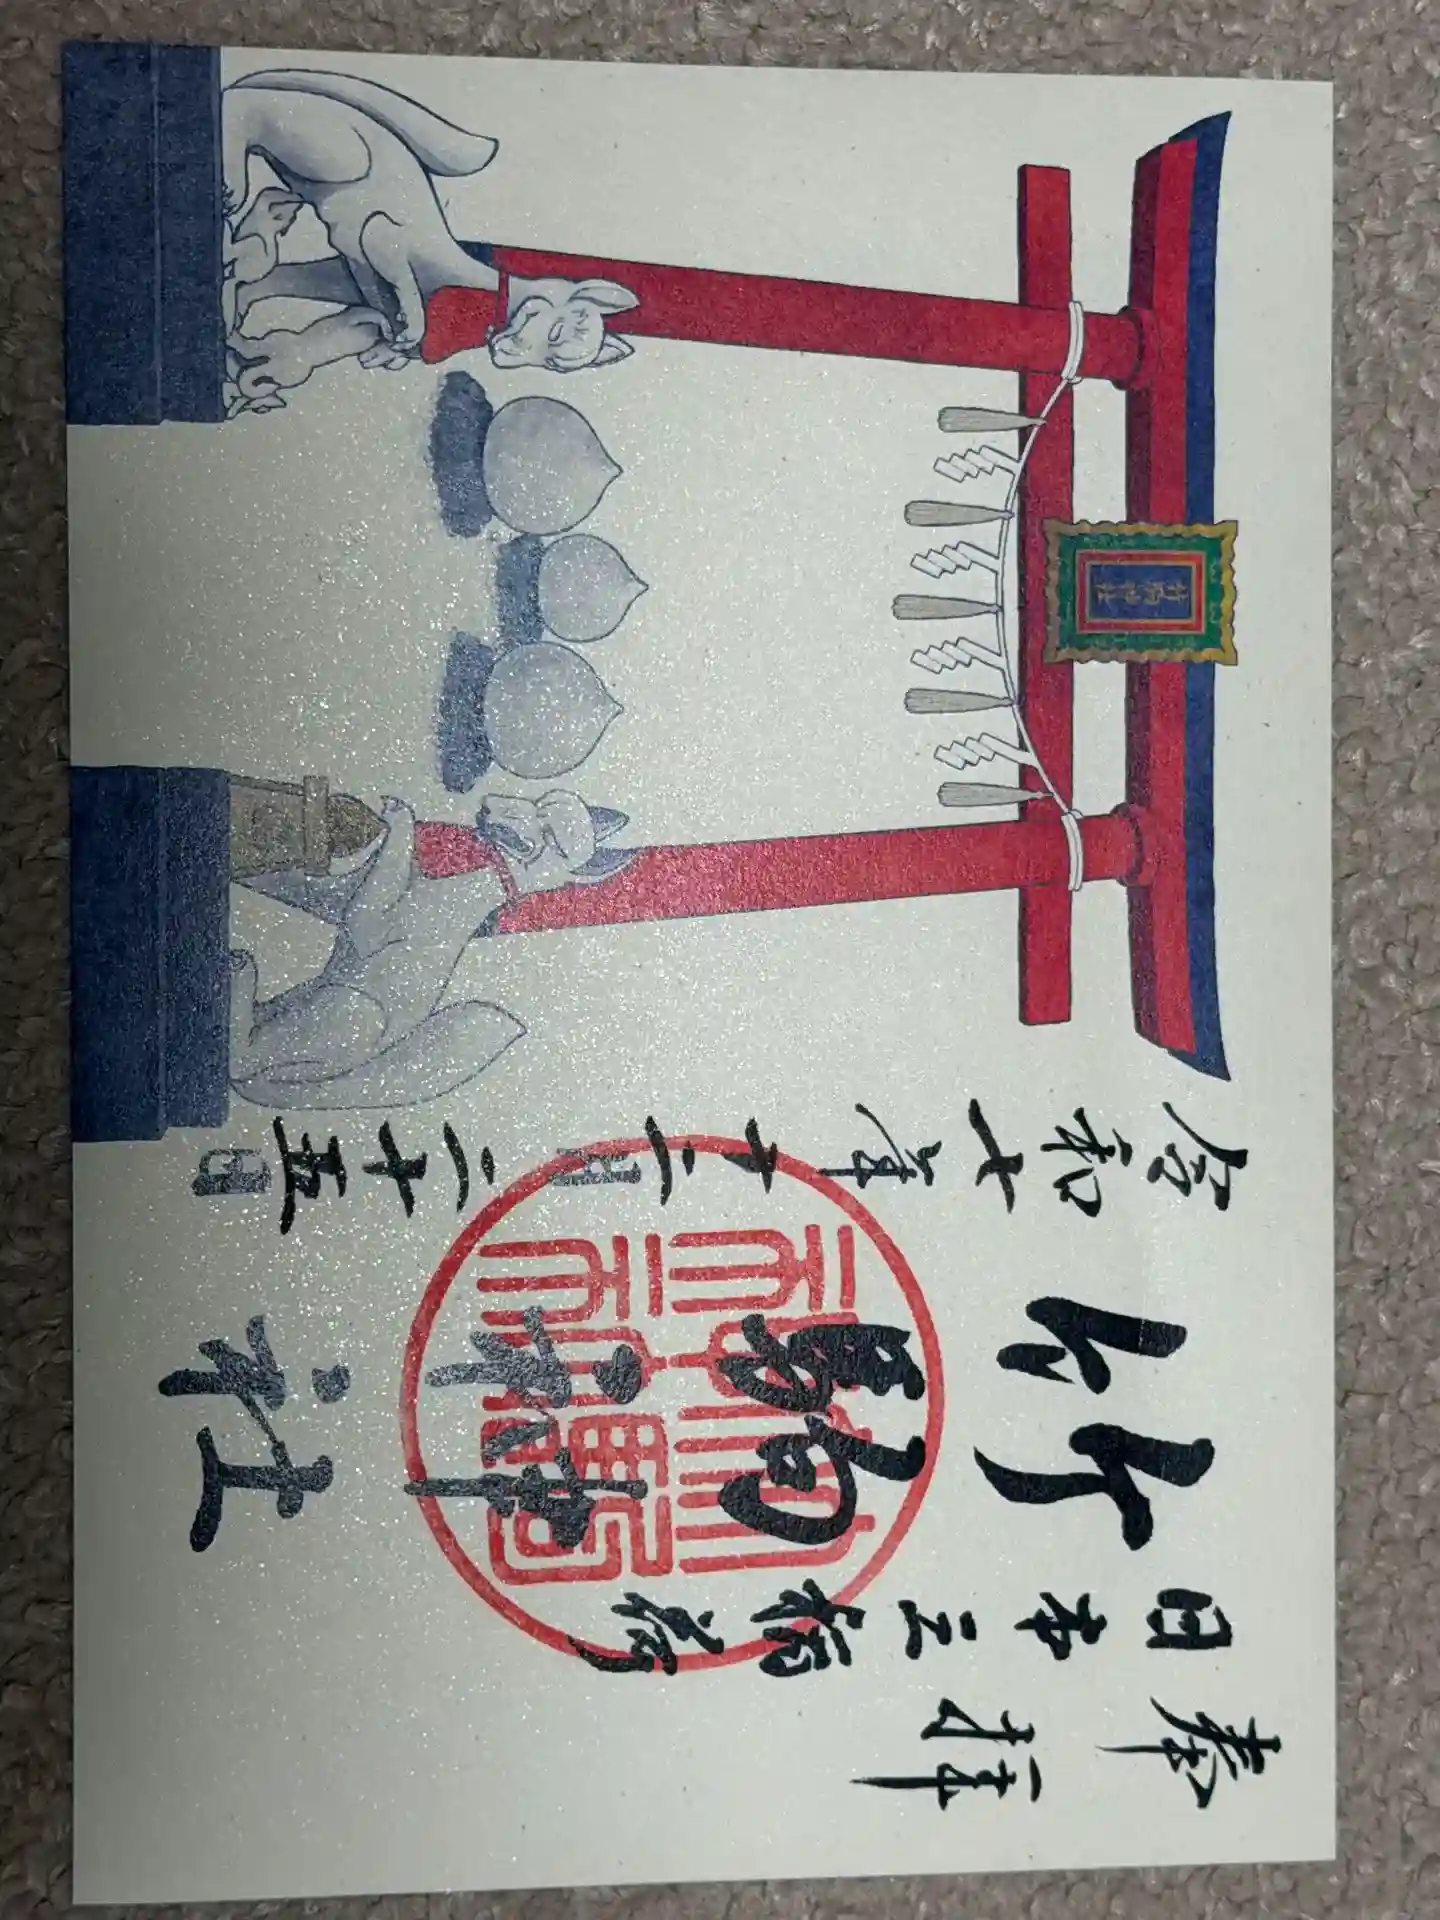 奉拝
日本三稲荷
竹駒神社
竹駒
神社
令和七年十二月二十五日
竹駒神社